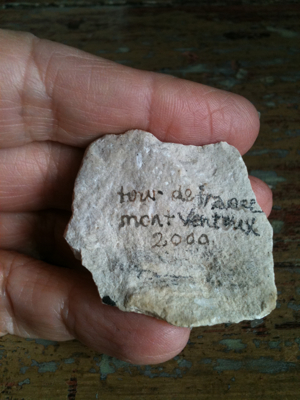 tour de france
mont ventoux
2000